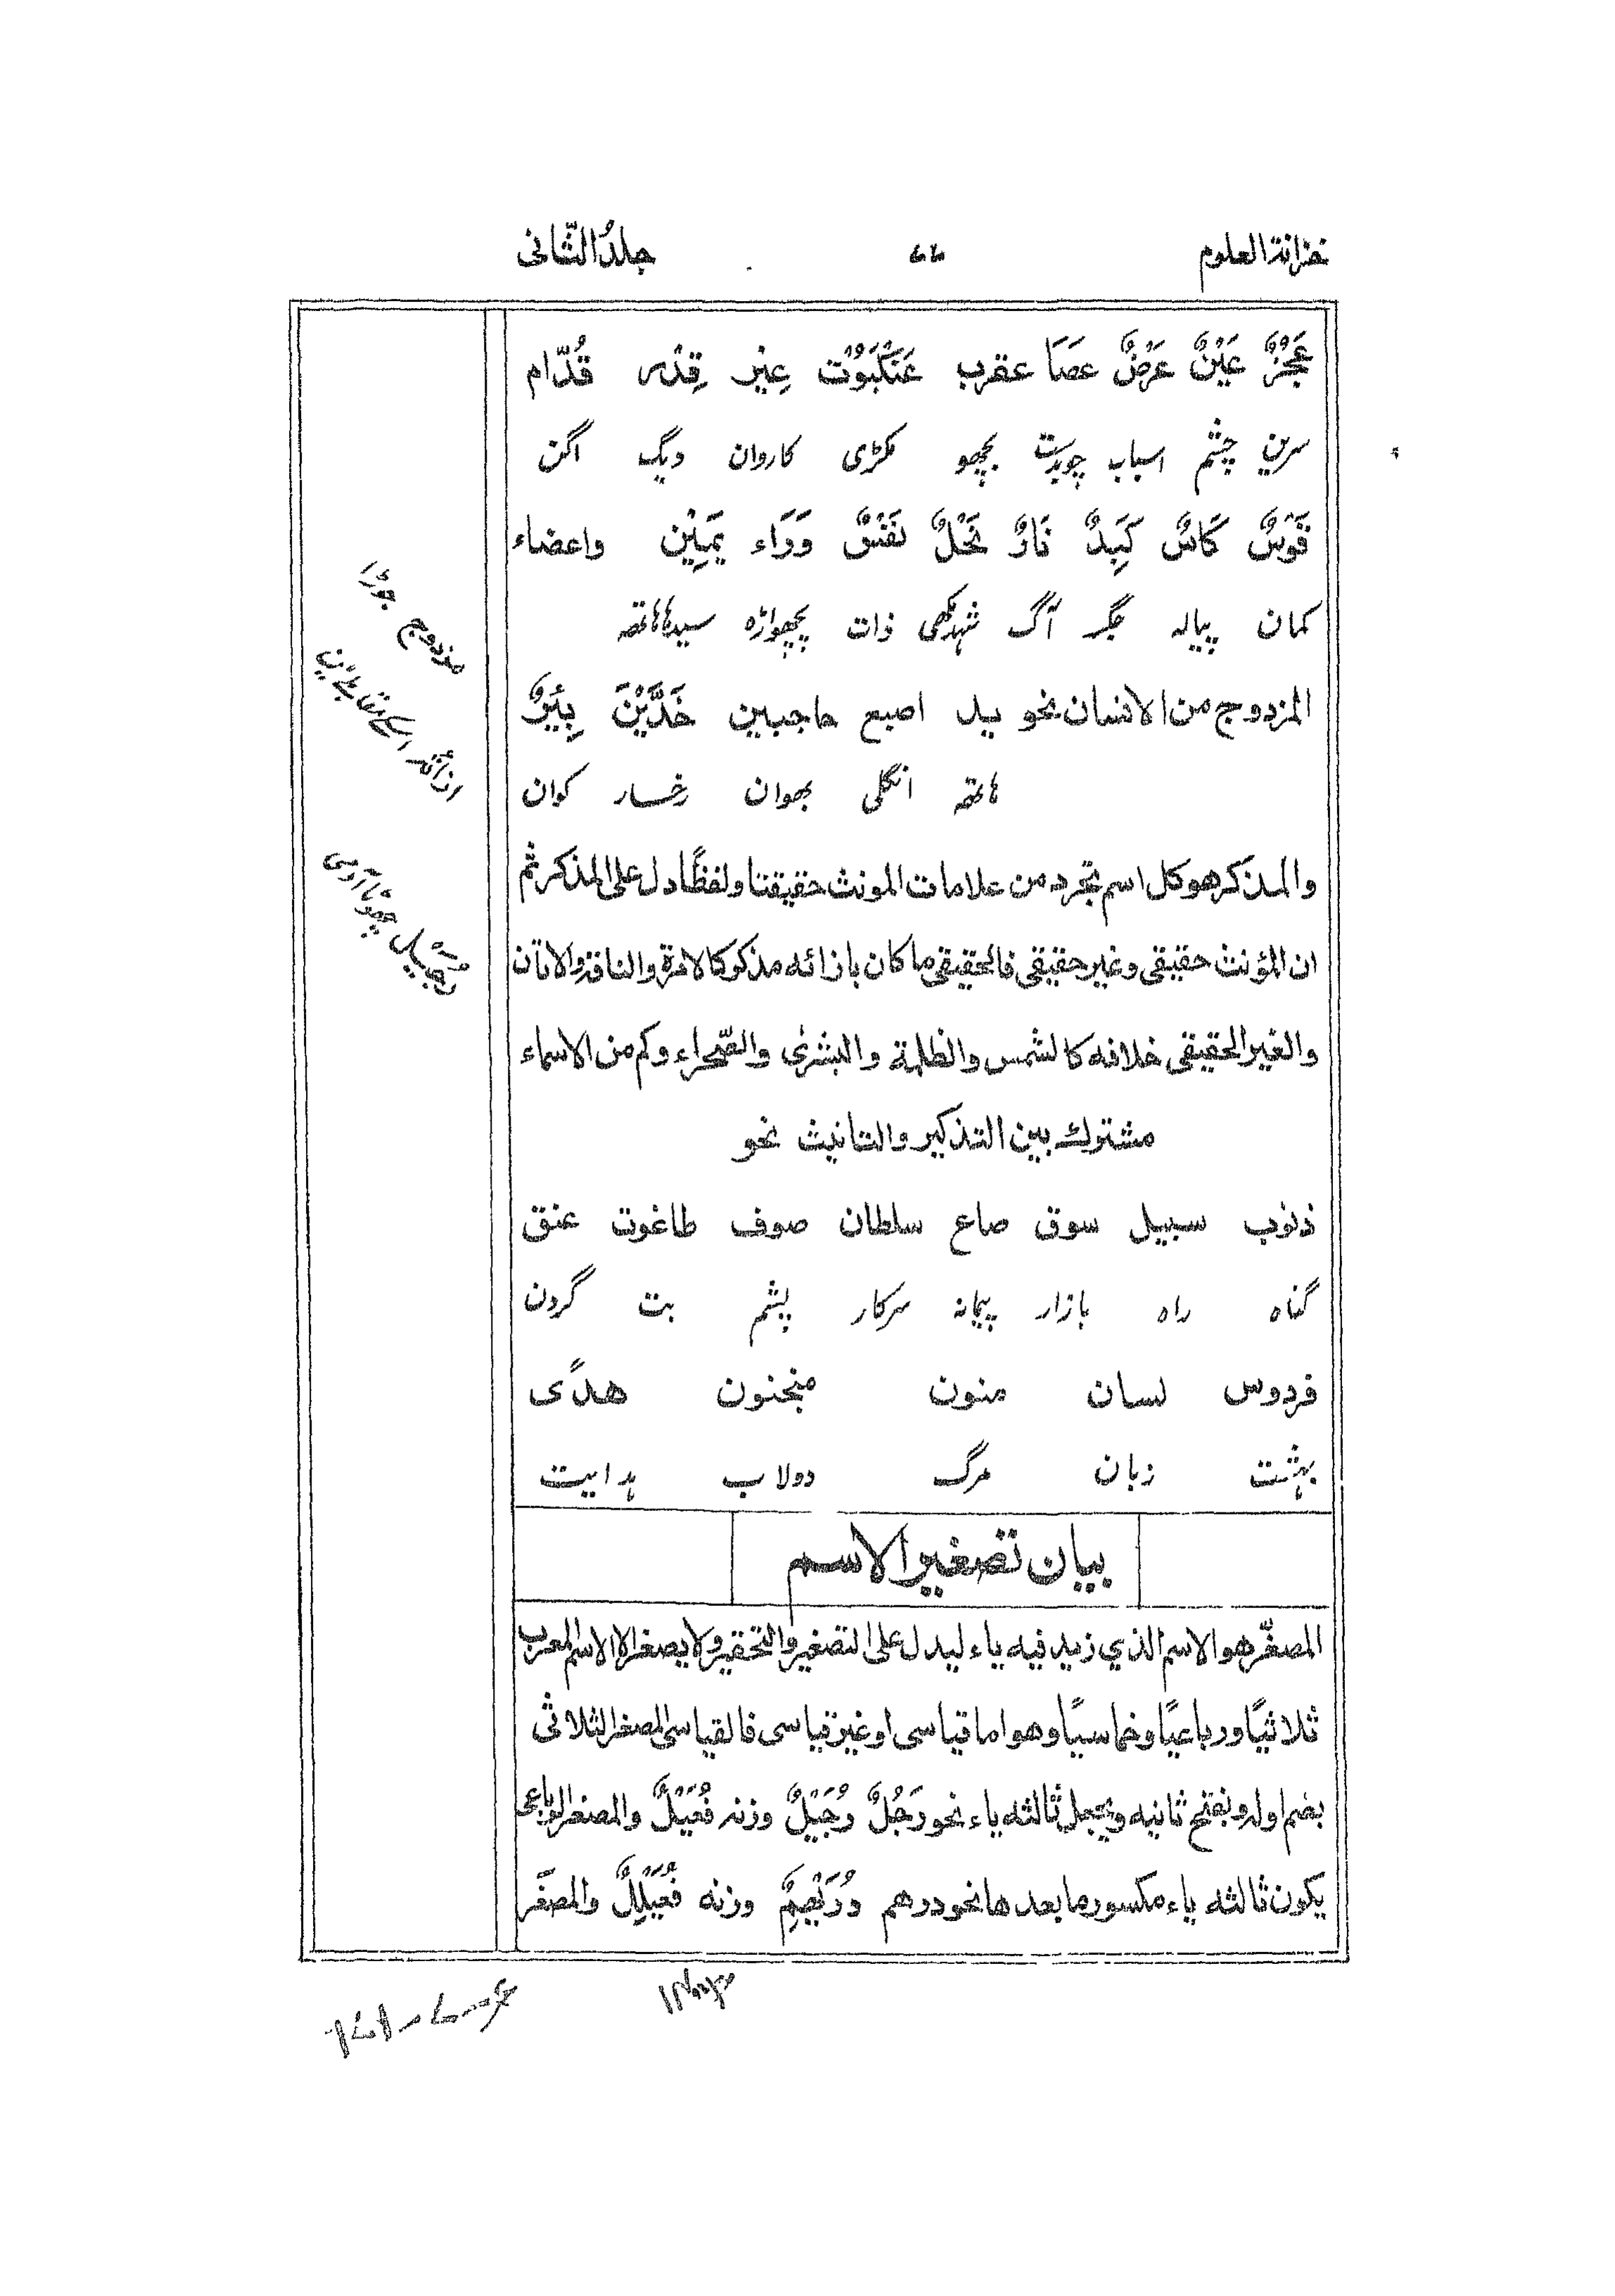 خزانة العلوم ۷۷ جلدُ الثّانی
عَجُزٌ عَيْنٌ عَرَضٌ عَصَا عقرب عَنْكَبُوْت عِيْر قِدْر قُدّام
سرین چشم اسباب چوبدست بچھو مکڑی کاروان دیگ اگن
قَوْسٌ كَاسٌ كَبِدٌ نَارٌ نَحْلٌ نَفْسٌ وَرَاء يَمِيْن واعضاء
کمان پیالہ جگر آگ شہدمکھی ذات پچھواڑہ سیدھاہاتھ
المزدوج من الانسان نحو يد اصبع حاجبين خَدَّيْنِ بِئْرٌ
ہاتھ انگلی بھوان رخسار کوان
والمذكر هو كل اسم تجرد من علامات المونث حقيقتا ولفظًا دل على المذكر ثم
ان المؤنث حقيقى وغير حقيقى فالحقيقى ما كان بازائه مذكر كالامرة والناقة والاتان
والغير الحقيقى خلافه كالشمس والظلمة والبشرى والصّحراء وكم من الاسماء
مشترك بين التذكير والتانيث نحو
ذنوب سبيل سوق صاع سلطان صوف طاغوت عنق
گناہ راہ بازار پیمانہ سرکار پشم بت گردن
فردوس لسان منون منجنون هدًى
بہشت زبان مرگ دولاب ہدایت
بيان تصغير الاسم
المصغّر هو الاسم الذي زيد فيه ياء ليدل على التصغير والتحقير ولا يصغر الا الاسم المعرب
ثلاثيًا ورباعيًا وخماسيًا وهو اما قياسى او غير قياسى فالقياسى المصغر الثلاثى
بضم اوله وبفتح ثانيه ويجعل ثالثه ياء نحو رَجُلٌ رُجَيْلٌ وزنه فُعَيْلٌ والمصغر الرباعى
يكون ثالثه ياء مكسور ما بعدها نحو درهم دُرَيْهِمٌ وزنه فُعَيْلِلٌ والمصغّر
مزدوج جوڑا
رُجَيْل چھوٹا آدمی